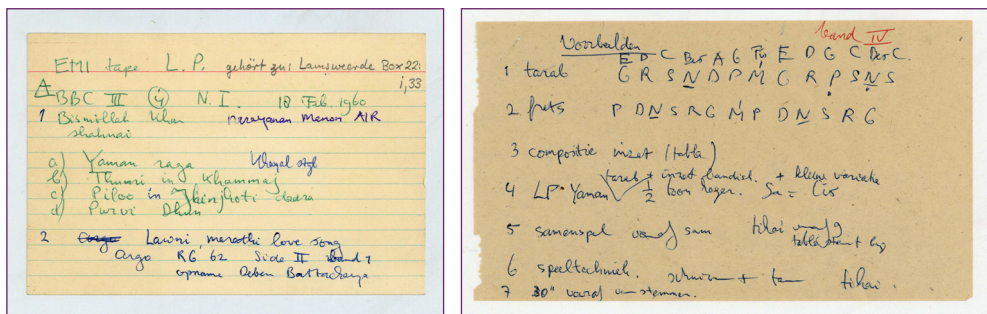 EMI tape L.P. gehört zu: Lamsweerde Box 22:
i,33
A BBC III (4) N.I. 18 Feb. 1960
1 Bismillah Khan Narayanan Menon AIR
shahnai
a) Yaman raga Kheyal styl
b) Thumri in Khammaj
c) Piloo in Jhinjhoti dadra
d) Purvi Dhun
2 Lawni, marathi love song
Argo RG 62 Side II Band 7
opname Deben Battacharya
band IV
Voorbeelden
E D C Bes A G Fis E D G C Bes C.
1 tarab G R S N D P M G R P S N S
2 frets P D N S R G M P D N S R G
3 compositie inzet (tabla)
tarab + inzet + kleine variatie
4 LP Yaman 1/2 toon lager. Sa = Cis
5 samenspel vanaf sam tihai vanaf 9
tabla stemt
6 speeltechniek. + tihai
7 30" vooraf stemmen.